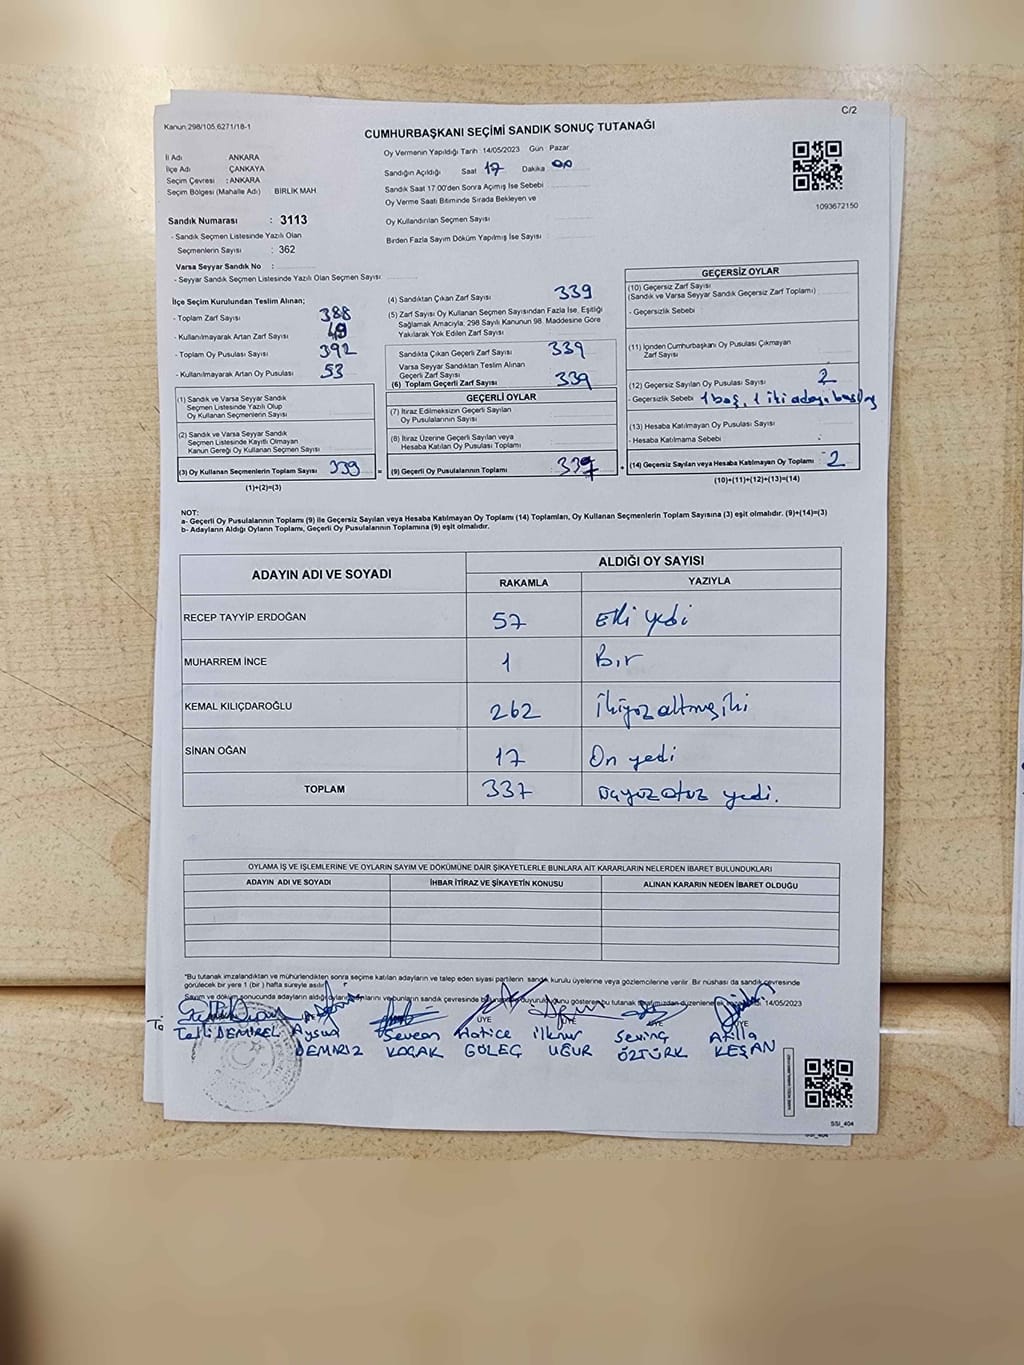 C/2
Kanun:298/105,6271/18-1
CUMHURBAŞKANI SEÇİMİ SANDIK SONUÇ TUTANAĞI
İl Adı ANKARA
İlçe Adı ÇANKAYA
Seçim Çevresi : ANKARA
Seçim Bölgesi (Mahalle Adı) BİRLİK MAH
Oy Vermenin Yapıldığı Tarih 14/05/2023 Gün Pazar
Sandığın Açıldığı Saat 17 Dakika 00
Sandık Saat 17:00'den Sonra Açılmış İse Sebebi
Oy Verme Saati Bitiminde Sırada Bekleyen ve
Oy Kullandırılan Seçmen Sayısı
Birden Fazla Sayım Döküm Yapılmış İse Sayısı :
1093672150
Sandık Numarası : 3113
- Sandık Seçmen Listesinde Yazılı Olan
Seçmenlerin Sayısı : 362
Varsa Seyyar Sandık No :
- Seyyar Sandık Seçmen Listesinde Yazılı Olan Seçmen Sayısı
İlçe Seçim Kurulundan Teslim Alınan;
- Toplam Zarf Sayısı 388
- Kullanılmayarak Artan Zarf Sayısı 49
- Toplam Oy Pusulası Sayısı 392
- Kullanılmayarak Artan Oy Pusulası 53
(1) Sandık ve Varsa Seyyar Sandık
Seçmen Listesinde Yazılı Olup
Oy Kullanan Seçmenlerin Sayısı
(2) Sandık ve Varsa Seyyar Sandık
Seçmen Listesinde Kayıtlı Olmayan
Kanun Gereği Oy Kullanan Seçmen Sayısı
(3) Oy Kullanan Seçmenlerin Toplam Sayısı 339 =
(1)+(2)=(3)
(4) Sandıktan Çıkan Zarf Sayısı 339
(5) Zarf Sayısı Oy Kullanan Seçmen Sayısından Fazla İse, Eşitliği
Sağlamak Amacıyla, 298 Sayılı Kanunun 98. Maddesine Göre
Yakılarak Yok Edilen Zarf Sayısı
Sandıkta Çıkan Geçerli Zarf Sayısı 339
Varsa Seyyar Sandıktan Teslim Alınan
Geçerli Zarf Sayısı
(6) Toplam Geçerli Zarf Sayısı 339
GEÇERLİ OYLAR
(7) İtiraz Edilmeksizin Geçerli Sayılan
Oy Pusulalarının Sayısı
(8) İtiraz Üzerine Geçerli Sayılan veya
Hesaba Katılan Oy Pusulası Toplamı
(9) Geçerli Oy Pusulalarının Toplamı 337 +
GEÇERSİZ OYLAR
(10) Geçersiz Zarf Sayısı
(Sandık ve Varsa Seyyar Sandık Geçersiz Zarf Toplamı)
- Geçersizlik Sebebi
(11) İçinden Cumhurbaşkanı Oy Pusulası Çıkmayan
Zarf Sayısı
(12) Geçersiz Sayılan Oy Pusulası Sayısı 2
- Geçersizlik Sebebi 1 boş, 1 iki adaya
(13) Hesaba Katılmayan Oy Pusulası Sayısı
- Hesaba Katılmama Sebebi
(14) Geçersiz Sayılan veya Hesaba Katılmayan Oy Toplamı : 2
(10)+(11)+(12)+(13)=(14)
NOT:
a- Geçerli Oy Pusulalarının Toplamı (9) ile Geçersiz Sayılan veya Hesaba Katılmayan Oy Toplamı (14) Toplamları, Oy Kullanan Seçmenlerin Toplam Sayısına (3) eşit olmalıdır. (9)+(14)=(3)
b- Adayların Aldığı Oyların Toplamı, Geçerli Oy Pusulalarının Toplamına (9) eşit olmalıdır.
ADAYIN ADI VE SOYADI
ALDIĞI OY SAYISI
RAKAMLA YAZIYLA
RECEP TAYYİP ERDOĞAN 57 Elli yedi
MUHARREM İNCE 1 Bir
KEMAL KILIÇDAROĞLU 262 İkiyüzaltmışiki
SİNAN OĞAN 17 On yedi
TOPLAM 337 üçyüzotuz yedi.
OYLAMA İŞ VE İŞLEMLERİNE VE OYLARIN SAYIM VE DÖKÜMÜNE DAİR ŞİKAYETLERLE BUNLARA AİT KARARLARIN NELERDEN İBARET BULUNDUKLARI
ADAYIN ADI VE SOYADI İHBAR İTİRAZ VE ŞİKAYETİN KONUSU ALINAN KARARIN NEDEN İBARET OLDUĞU
"Bu tutanak imzalandıktan ve mühürlendikten sonra seçime katılan adayların ve talep eden siyasi partilerin sandık kurulu üyelerine veya gözlemcilerine verilir. Bir nüshası da sandık çevresinde
görülecek bir yere 1 (bir) hafta süreyle asılır."
Sayım ve döküm sonucunda adayların aldığı oyların 14/05/2023
ÜYE ÜYE ÜYE ÜYE
DEMİREL Aysun Sevcan Hatice İlknur Sevinç Atilla
DEMİRİZ KOÇAK GÖLEÇ UĞUR ÖZTÜRK KEŞAN
SSI_404